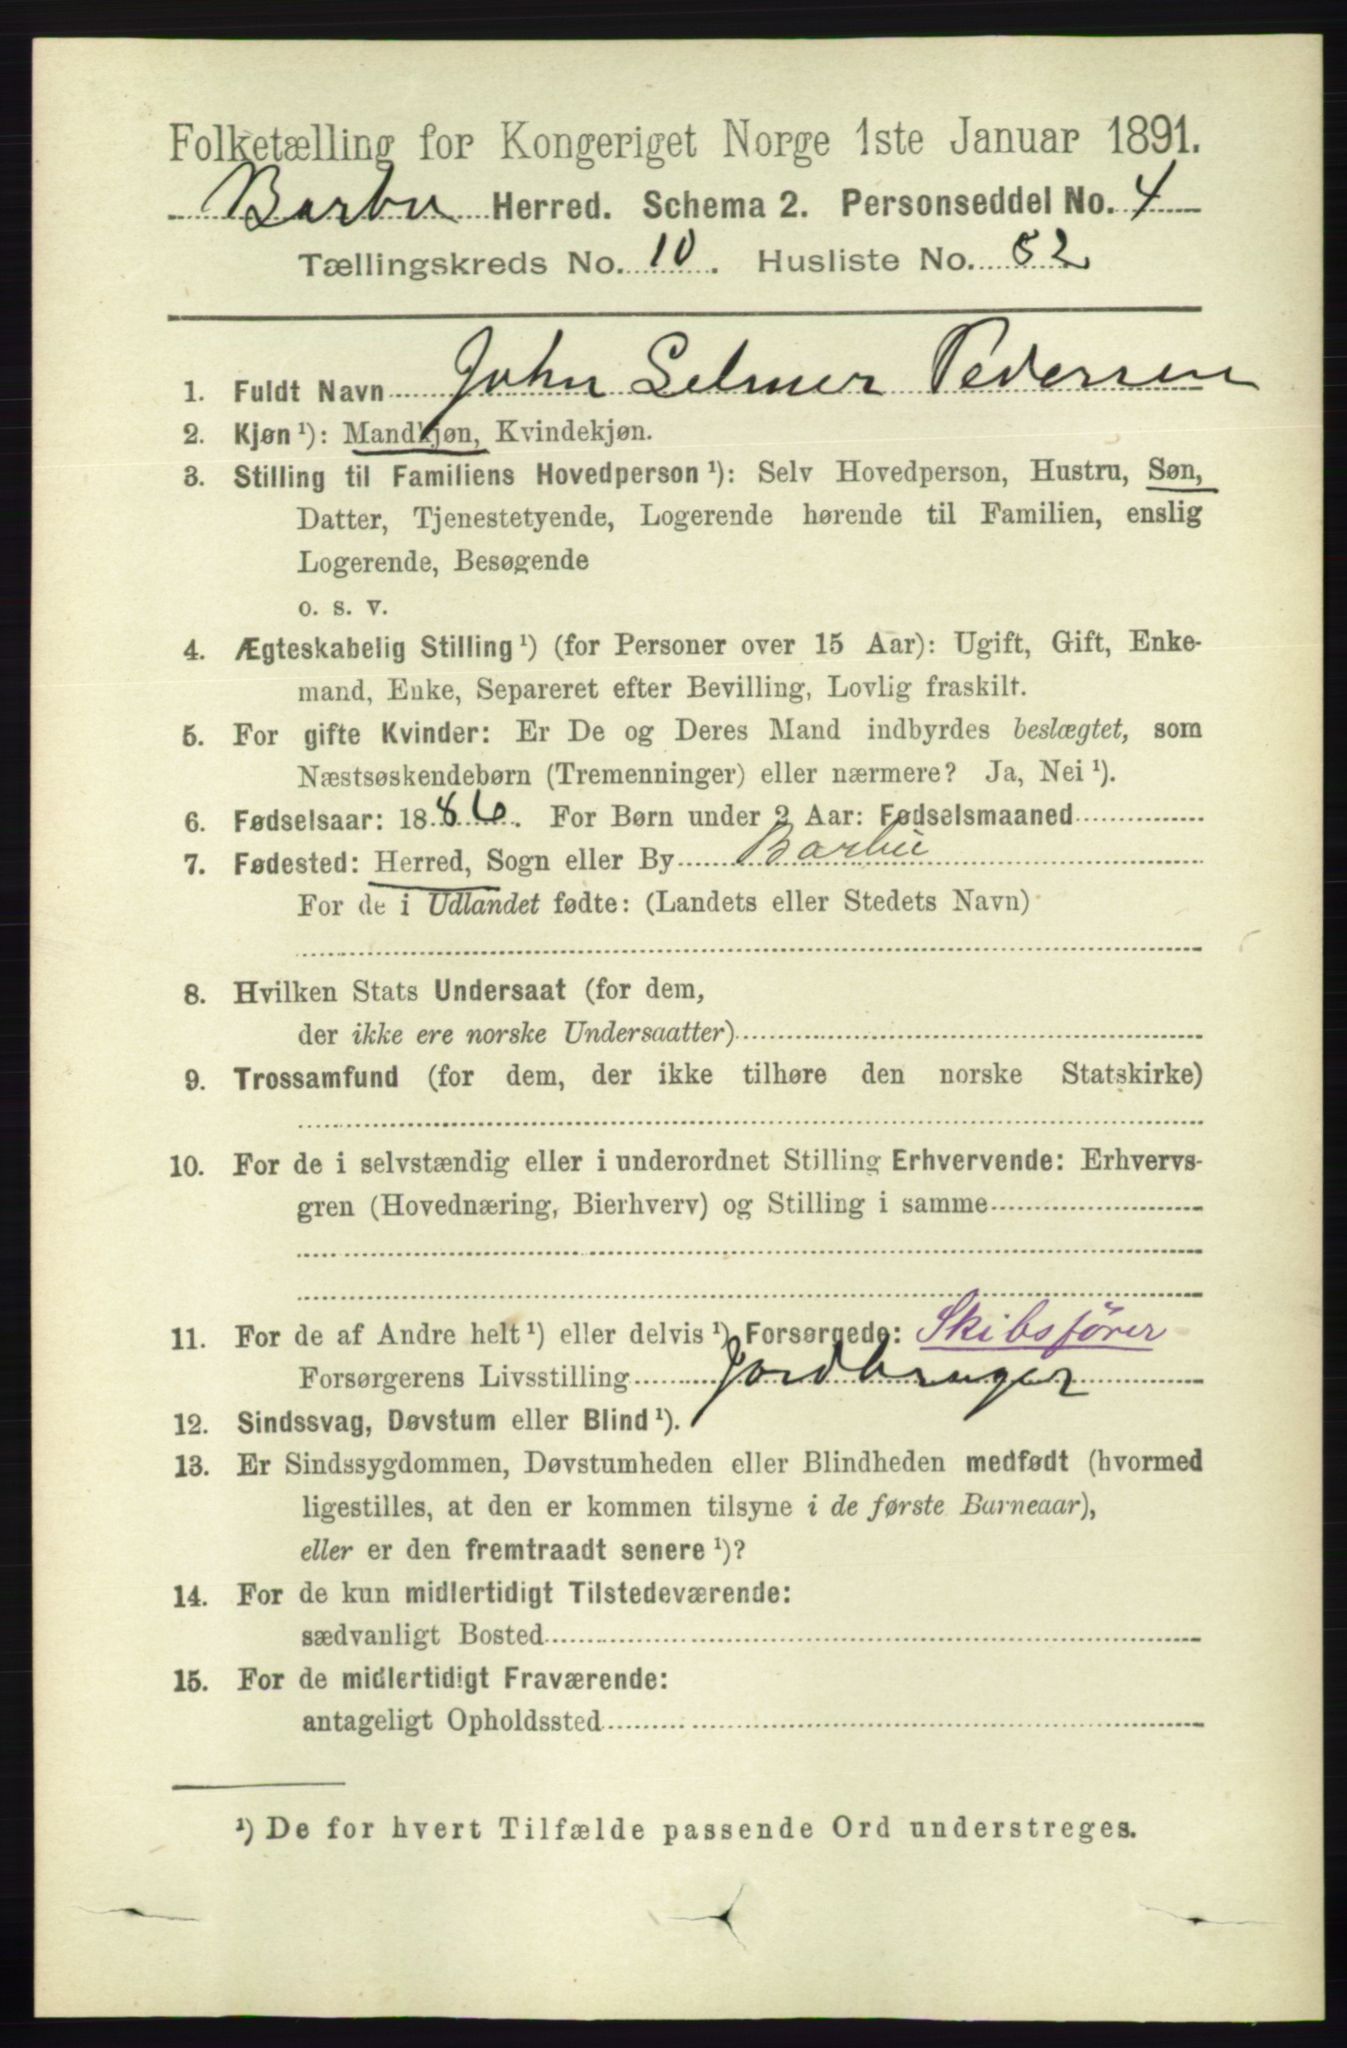 Folketælling for Kongeriget Norge 1ste Januar 1891.
Barbu Herred. Schema 2. Personseddel No. 4
Tællingskreds No. 10. Husliste No. 52
1. Fuldt Navn John Selmer Pedersen
2. Kjøn ¹): Mandkjøn, Kvindekjøn.
3. Stilling til Familiens Hovedperson ¹): Selv Hovedperson, Hustru, Søn,
Datter, Tjenestetyende, Logerende hørende til Familien, enslig
Logerende, Besøgende
o. s. v.
4. Ægteskabelig Stilling ¹) (for Personer over 15 Aar): Ugift, Gift, Enke-
mand, Enke, Separeret efter Bevilling, Lovlig fraskilt.
5. For gifte Kvinder: Er De og Deres Mand indbyrdes beslægtet, som
Næstsøskendebørn (Tremenninger) eller nærmere? Ja, Nei ¹).
6. Fødselsaar: 1886. For Børn under 2 Aar: Fødselsmaaned
7. Fødested: Herred, Sogn eller By Barbu
For de i Udlandet fødte: (Landets eller Stedets Navn)
8. Hvilken Stats Undersaat (for dem,
der ikke ere norske Undersaatter)
9. Trossamfund (for dem, der ikke tilhøre den norske Statskirke)
10. For de i selvstændig eller i underordnet Stilling Erhvervende: Erhvervs-
gren (Hovednæring, Bierhverv) og Stilling i samme
11. For de af Andre helt ¹) eller delvis ¹) Forsørgede: Skibsfører
Forsørgerens Livsstilling Jordbruger
12. Sindssvag, Døvstum eller Blind ¹).
13. Er Sindssygdommen, Døvstumheden eller Blindheden medfødt (hvormed
ligestilles, at den er kommen tilsyne i de første Barneaar),
eller er den fremtraadt senere ¹)?
14. For de kun midlertidigt Tilstedeværende:
sædvanligt Bosted
15. For de midlertidigt Fraværende:
antageligt Opholdssted
¹) De for hvert Tilfælde passende Ord understreges.